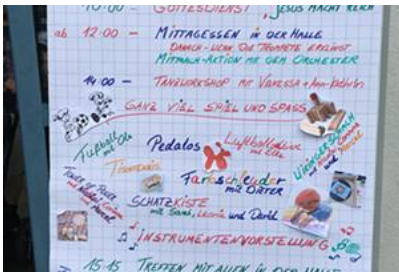 10:00 - GOTTESDIENST „JESUS MACHT REICH
ab 12:00 - MITTAGESSEN IN DER HALLE
DANACH - WENN DIE TROMPETE ERKLINGT
MITMACH-AKTION MIT DEM ORCHESTER
14:00 - TANZWORKSHOP MIT VANESSA + Ann-Kathrin
GANZ VIEL SPIEL UND SPASS
Fußball mit Ole
Pedalos
Luftballontiere mit Elke
WIKINGERSCHACH
und
Farbschleuder mit DIETER
TOWER OF POWER
mit
und
SCHATZKISTE
mit Sarah, Leonie und David
INSTRUMENTENVORSTELLUNG
15:15 TREFFEN MIT ALLEN IN DER HALLE